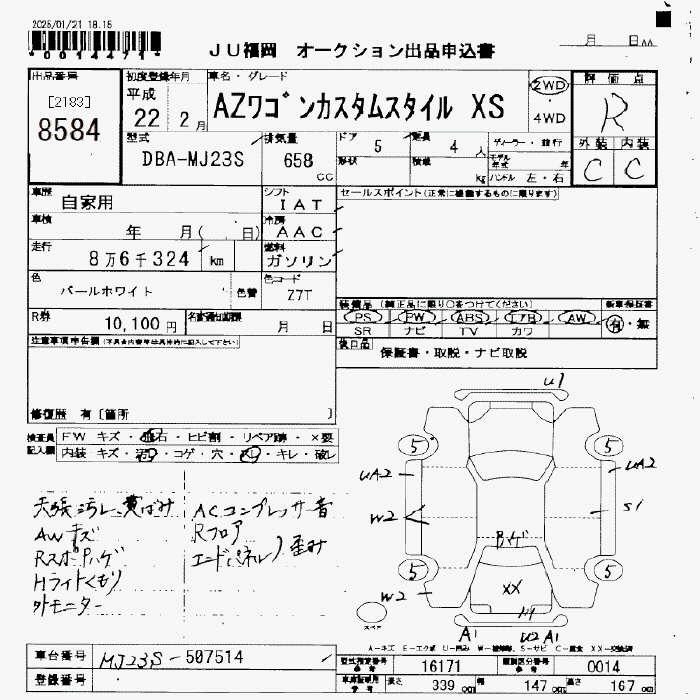 2025/01/21 18.15
*0014471*
JU福岡 オークション出品申込書
月 日
出品番号
[2183]
8584
初度登録年月
平成
22 2月
車名・グレード
AZワゴンカスタムスタイル XS
2WD
4WD
評価点
R
外装 内装
C C
型式
DBA-MJ23S
排気量
658 cc
ドア 5
形状
定員 4 人
積載 kg
ディーラー・並行
モデル年式 年
ハンドル 左・右
車歴
自家用
シフト
IAT
セールスポイント(正常に機能するものに限ります)
車検
年 月( 日)
冷房
AAC
走行
8万6千324 km
燃料
ガソリン
色
パールホワイト
色替
色コード
Z7T
R券
10,100 円
名義変更期限
月 日
装備品 (純正品に限り○をつけてください)
新車保証書
PS PW ABS エアB AW
有・無
SR ナビ TV カワ
注意事項申告欄
後日品
保証書・取説・ナビ取説
修復歴 有 [箇所 ]
検査員記入欄
FW キズ・飛石・ヒビ割・リペア跡・×要
内装 キズ・汚れ・コゲ・穴・凹・キレ・破レ
天張汚レ、黄ばみ
AWキズ
Rスポハゲ
Hライトくもり
外モニター
ACコンプレッサ音
Rフロア
エンドパネル)歪み
U1
5 5
UA2 UA2
W2 S1
5 5
XX
W2
スペア
A1 U2 A1
車台番号 MJ23S-507514
登録番号
型式指定番号 参考 16171
類別区分番号 参考 0014
車庫証明用 参考 長さ 339 cm 幅 147 cm 高さ 167 cm